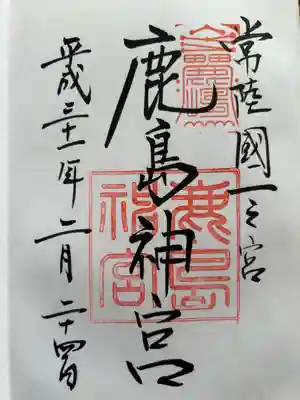 常陸國一之宮
鹿島神宮
平成三十一年二月二十四日
鹿島神宮